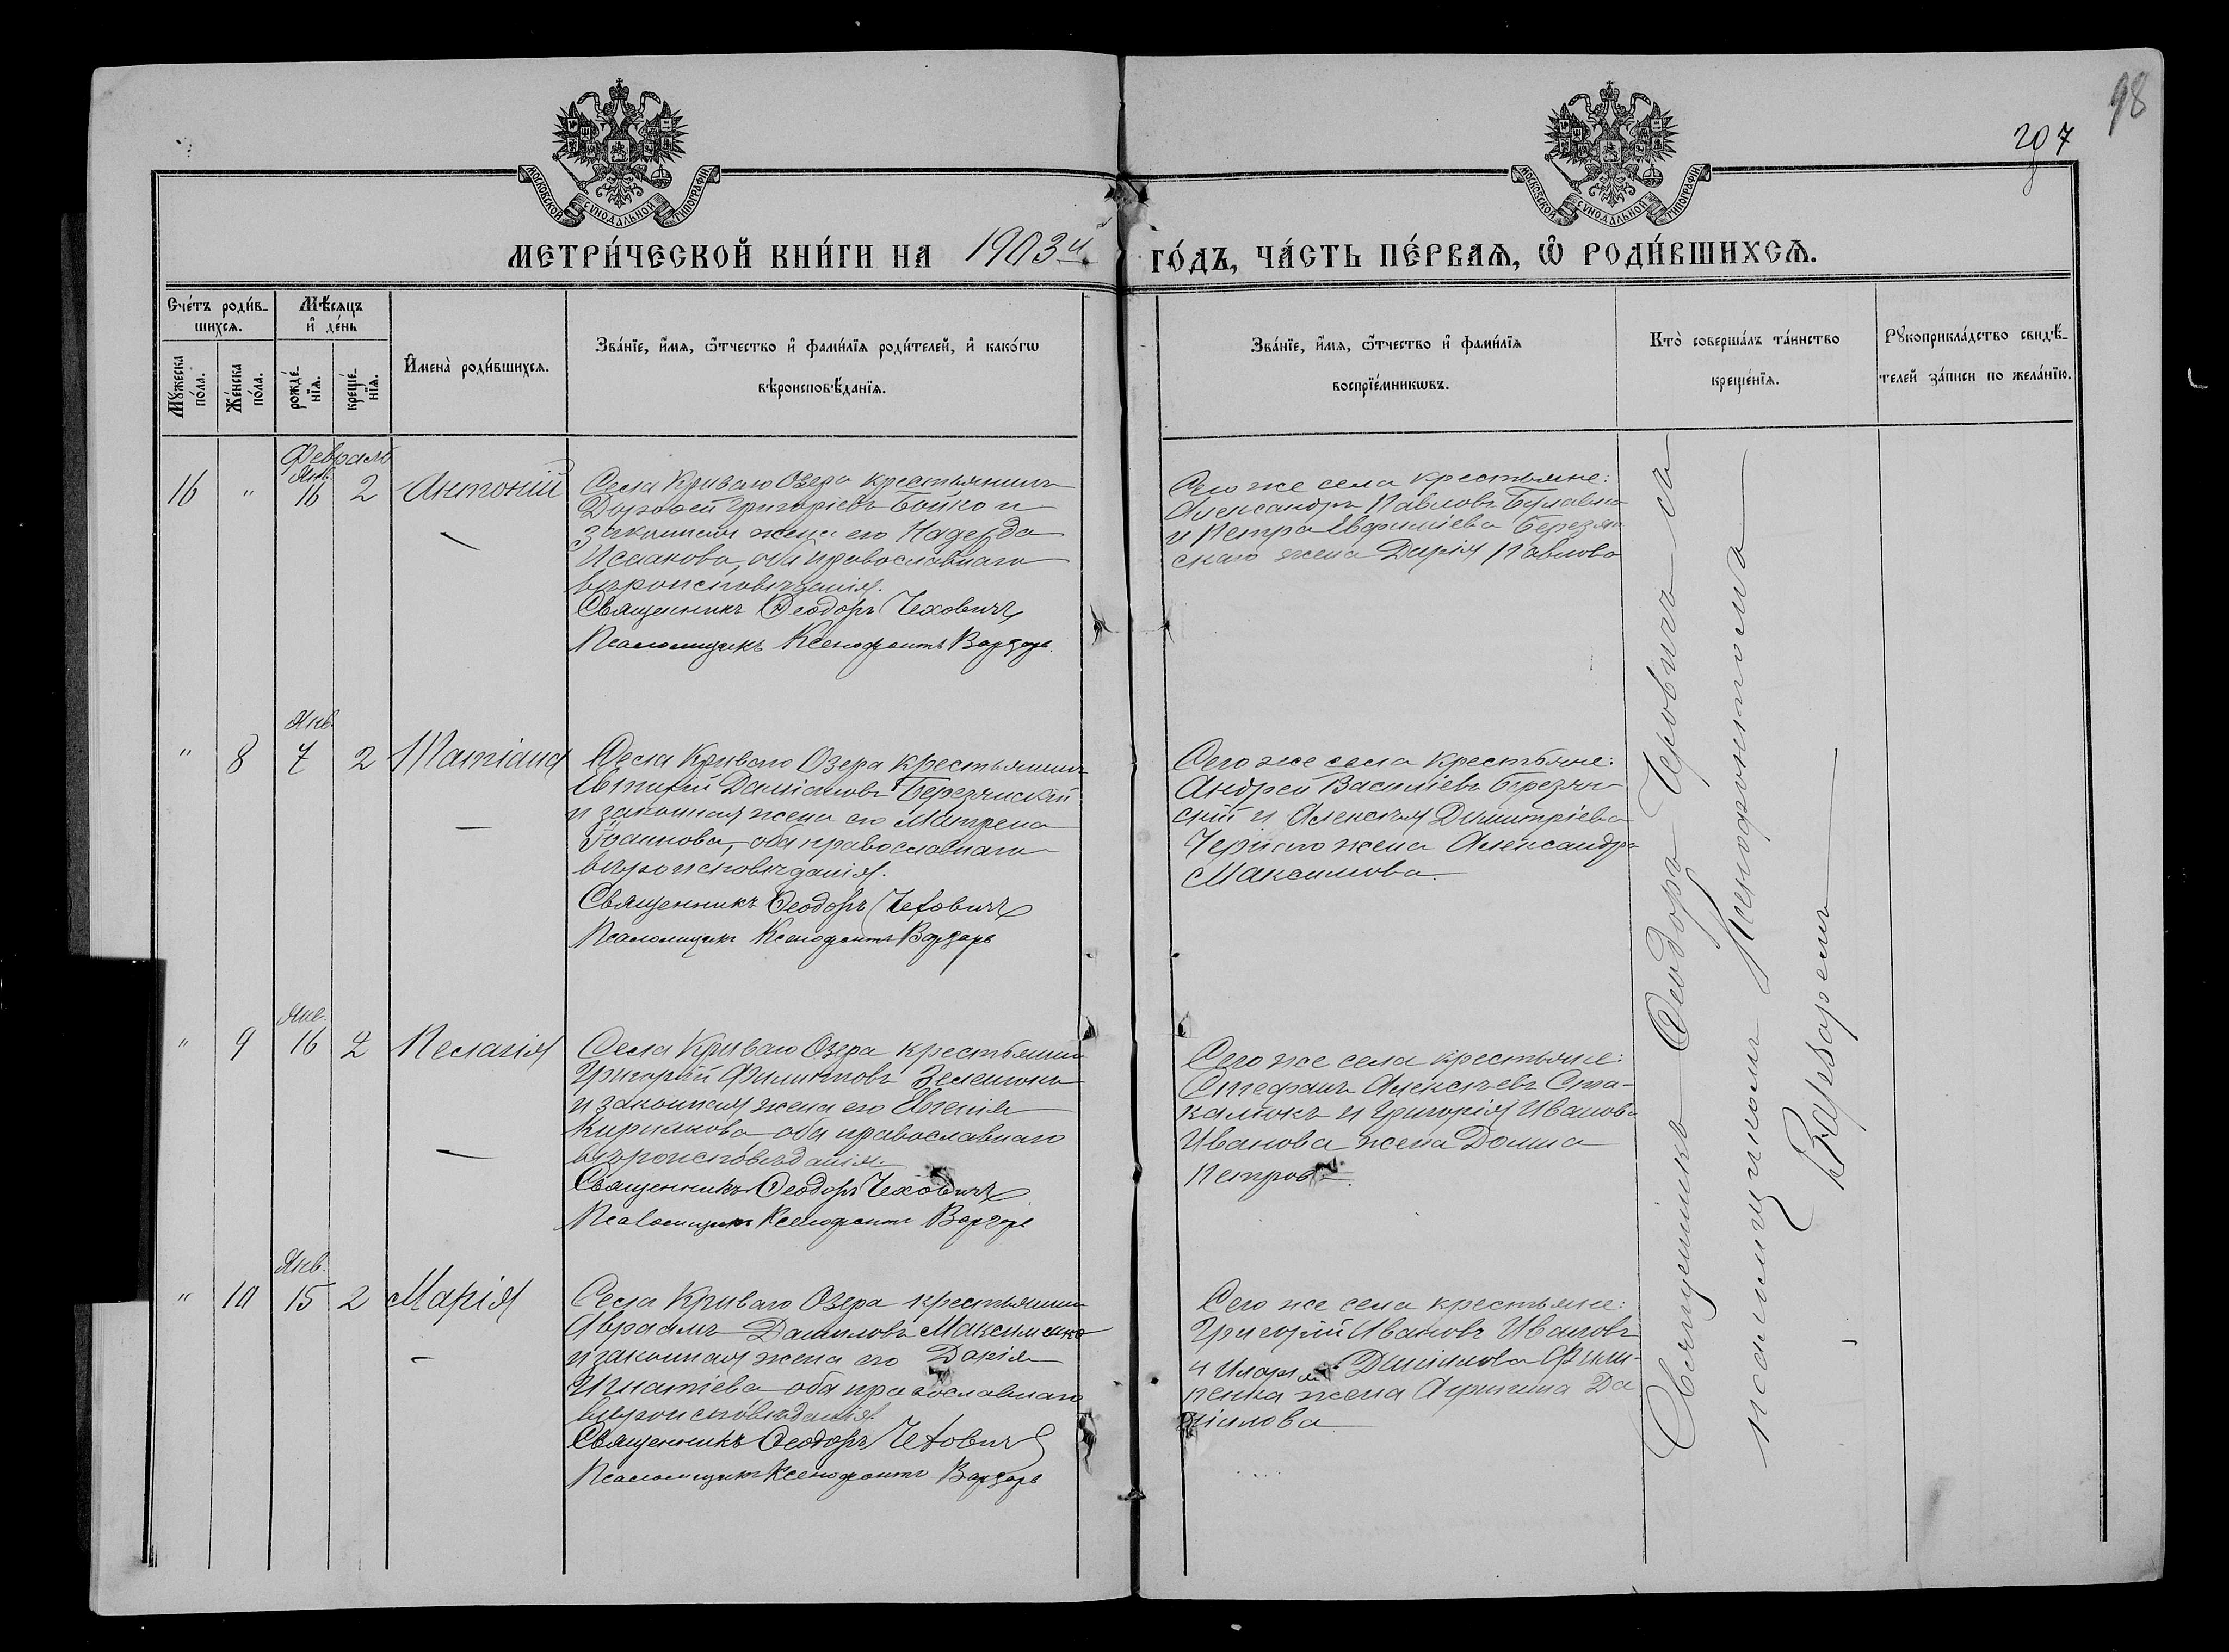 98
207
МОСКОВСКОЙ СѴНОДАЛЬНОЙ ТИПОГРАФІИ
МОСКОВСКОЙ СѴНОДАЛЬНОЙ ТИПОГРАФІИ
МЕТРИ́ЧЕСКОЙ КНИ́ГИ НА 1903й
ГО́ДЪ, ЧА́СТЬ ПЕ́РВАѦ, Ѽ РОДИ́ВШИХСѦ.
Сче́тъ роди́в-
шихсѧ.
Мѣ́сѧцъ
и҆ де́нь
Мꙋ́жеска по́ла.
Же́нска по́ла.
рожде́-нїѧ.
креще́-нїѧ.
И҆мена̀ роди́вшихсѧ.
Зва́нїе, и҆́мѧ, ѻ҆́тчество и҆ фами́лїѧ роди́телей, и҆ како́гѡ
вѣроисповѣ́данїѧ.
Зва́нїе, и҆́мѧ, ѻ҆́тчество и҆ фами́лїѧ
воспрїе́мникѡвъ.
Кто̀ соверша́лъ та́инство
креще́нїѧ.
Рꙋкоприкла́дство свидѣ́-
телей за́писи по жела́нїю.
Февраль
Янв.
16 " 16 2 Антоній
Села Криваго Озера крестьянинъ
Григоріевъ Бойко и
законная жена его Надежда
Исаакова, оба православнаго
вѣроисповѣданія.
Священникъ Ѳеодоръ Чеховичъ
Псаломщикъ Ксенофонтъ Варзарь.
Сего же села крестьяне:
Александръ Павловъ
и Петра Евфиміева Березян-
скаго жена Дарія Павлова
Янв.
" 8 7 2 Татіана
Села Криваго Озера крестьянинъ
Евтихій Даміановъ Березянскій
и законная жена его Матрена
Іоаннова, оба православнаго
вѣроисповѣданія.
Священникъ Ѳеодоръ Чеховичъ
Псаломщикъ Ксенофонтъ Варзарь
Сего же села крестьяне:
Андрей Василіевъ Березян-
скій и Алексѣя Димитріева
Чернаго жена Александра
Максимова.
Янв.
" 9 16 2 Пелагія
Села Криваго Озера крестьянинъ
Григорій Филипповъ Зеленюкъ
и законная жена его Евгенія
Киріакова оба православнаго
вѣроисповѣданія.
Священникъ Ѳеодоръ Чеховичъ
Псаломщикъ Ксенофонтъ Варзарь
Сего же села крестьяне:
Стефанъ Алексѣевъ Ста-
и Григорія Иванова
Иванова жена Домна
Петрова.
Янв.
" 10 15 2 Марія
Села Криваго Озера крестьянинъ
Авраамъ Даниловъ Максименко
и законная жена его Дарія
Игнатіева оба православнаго
вѣроисповѣданія.
Священникъ Ѳеодоръ Чеховичъ
Псаломщикъ Ксенофонтъ Варзарь
Сего же села крестьяне:
Григорій Ивановъ Ивановъ
и Даміанова Фили-
пенка жена Агрипина Да-
Священникъ Ѳеодоръ Чеховичъ съ
псаломщикомъ Ксенофонтомъ
Варзаремъ